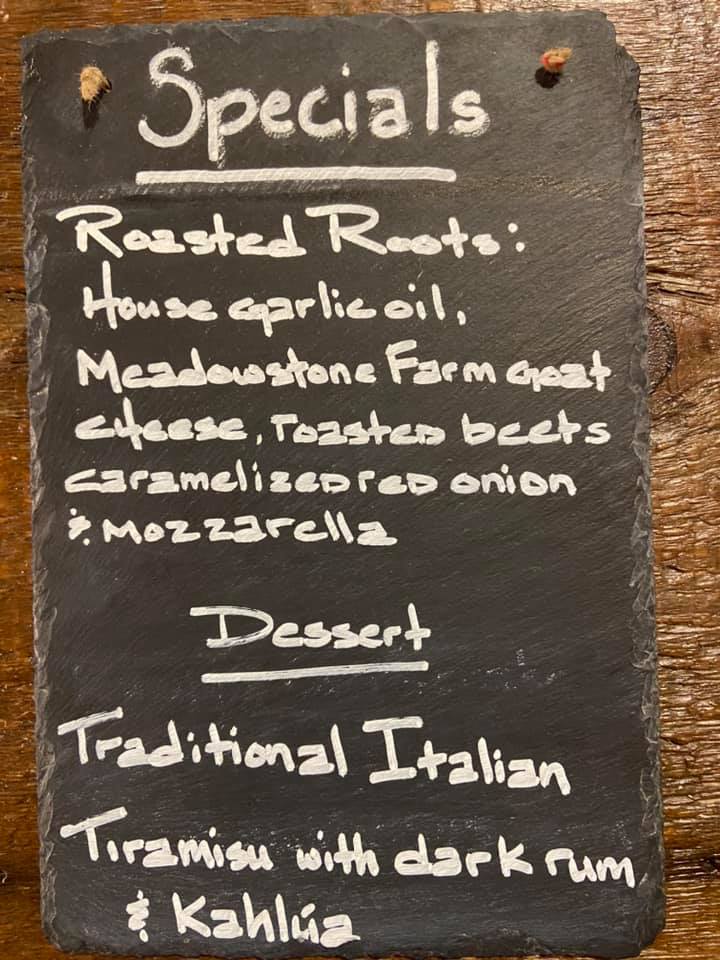 Specials
Roasted Roots:
House garlic oil,
Meadowstone Farm Goat
cheese, roasted beets
caramelized red onion
& Mozzarella
Dessert
Traditional Italian
Tiramisu with dark rum
& Kahlúa